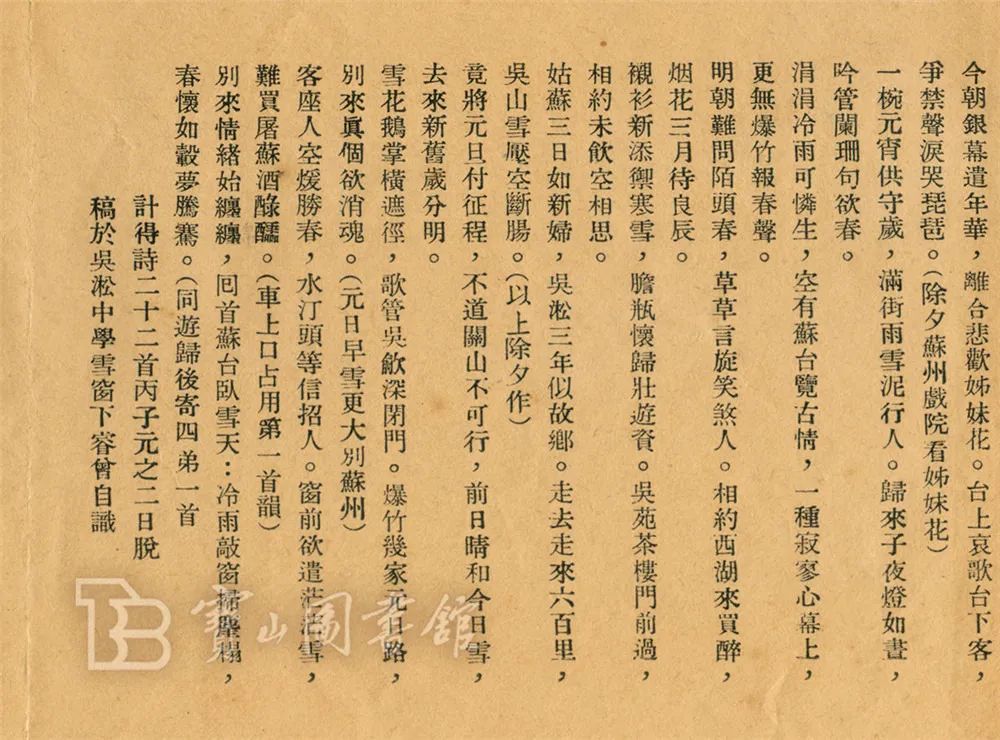 今朝銀幕遣年華，離合悲歡姊妹花。台上哀歌台下客，
爭禁聲淚哭琵琶。(除夕蘇州戲院看姊妹花)
一椀元宵供守歲，滿街雨雪泥行人。歸來子夜燈如晝，
吟管闌珊句欲春。
涓涓冷雨可憐生，空有蘇台覽古情，一種寂寥心幕上，
更無爆竹報春聲。
明朝難問陌頭春，草草言旋笑煞人。相約西湖來買醉，
烟花三月待良辰。
襯衫新添禦寒雪，膽瓶懷歸壯遊資。吳苑茶樓門前過，
相約未飲空相思。
姑蘇三日如新婦，吳淞三年似故鄉。走去走來六百里，
吳山雪壓空斷腸。(以上除夕作)
竟將元旦付征程，不道關山不可行，前日晴和今日雪，
去來新舊歲分明。
雪花鵝掌橫遮徑，歌管吳歈深閉門。爆竹幾家元日路，
別來眞個欲消魂。(元日早雪更大別蘇州)
客座人空煖勝春，水汀頭等信招人。窗前欲遣茫茫雪，
難買屠蘇酒醁醽。(車上口占用第一首韻)
別來情緒始纏纏，囘首蘇台臥雪天：冷雨敲窗掃塵榻，
春懷如縠夢騰騫。(同遊歸後寄四弟一首
計得詩二十二首丙子元之二日脫
稿於吳淞中學雪窗下睿曾自識
寶山圖書館